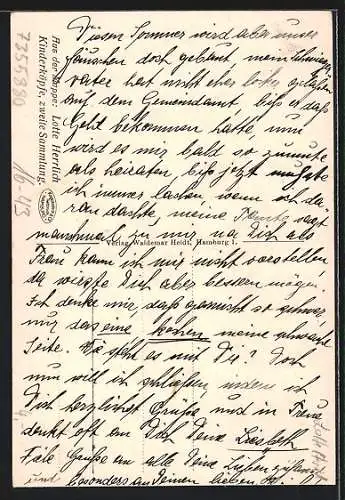 Diesen Sommer wird aber unser
Häuschen doch gebaut, mein Schwieger-
vater hat nicht eher locker gelassen
auf dem Gemeindamt bis er das
Geld bekommen hatte, nun
wird es mir bald so zumute
als heiraten, bis jetzt mußte
ich immer lachen wenn ich da-
ran dachte, meine sagt
manchmal zu mir na Dich als
Frau kann ich mir nicht vorstellen
da wirst Dich aber bessern mögen.
Ich denke mir, das gar nicht so schwer
nur das eine kochen meine schwache
Seite. Wie steht es mit Dir? Doch
nun will ich schließen, indem ich
Dich herzlichst Grüße, und in Treue
denkt oft an Dich Deine Liesbeth
Viele Grüße an alle Deine Lieben zuhause
und besonders an Deinen lieben
Aus der Mappe: Lotte Herrlich
Kinderköpfe, zweite Sammlung.
Verlag Waldemar Heidt, Hamburg 1.
735580
16-43